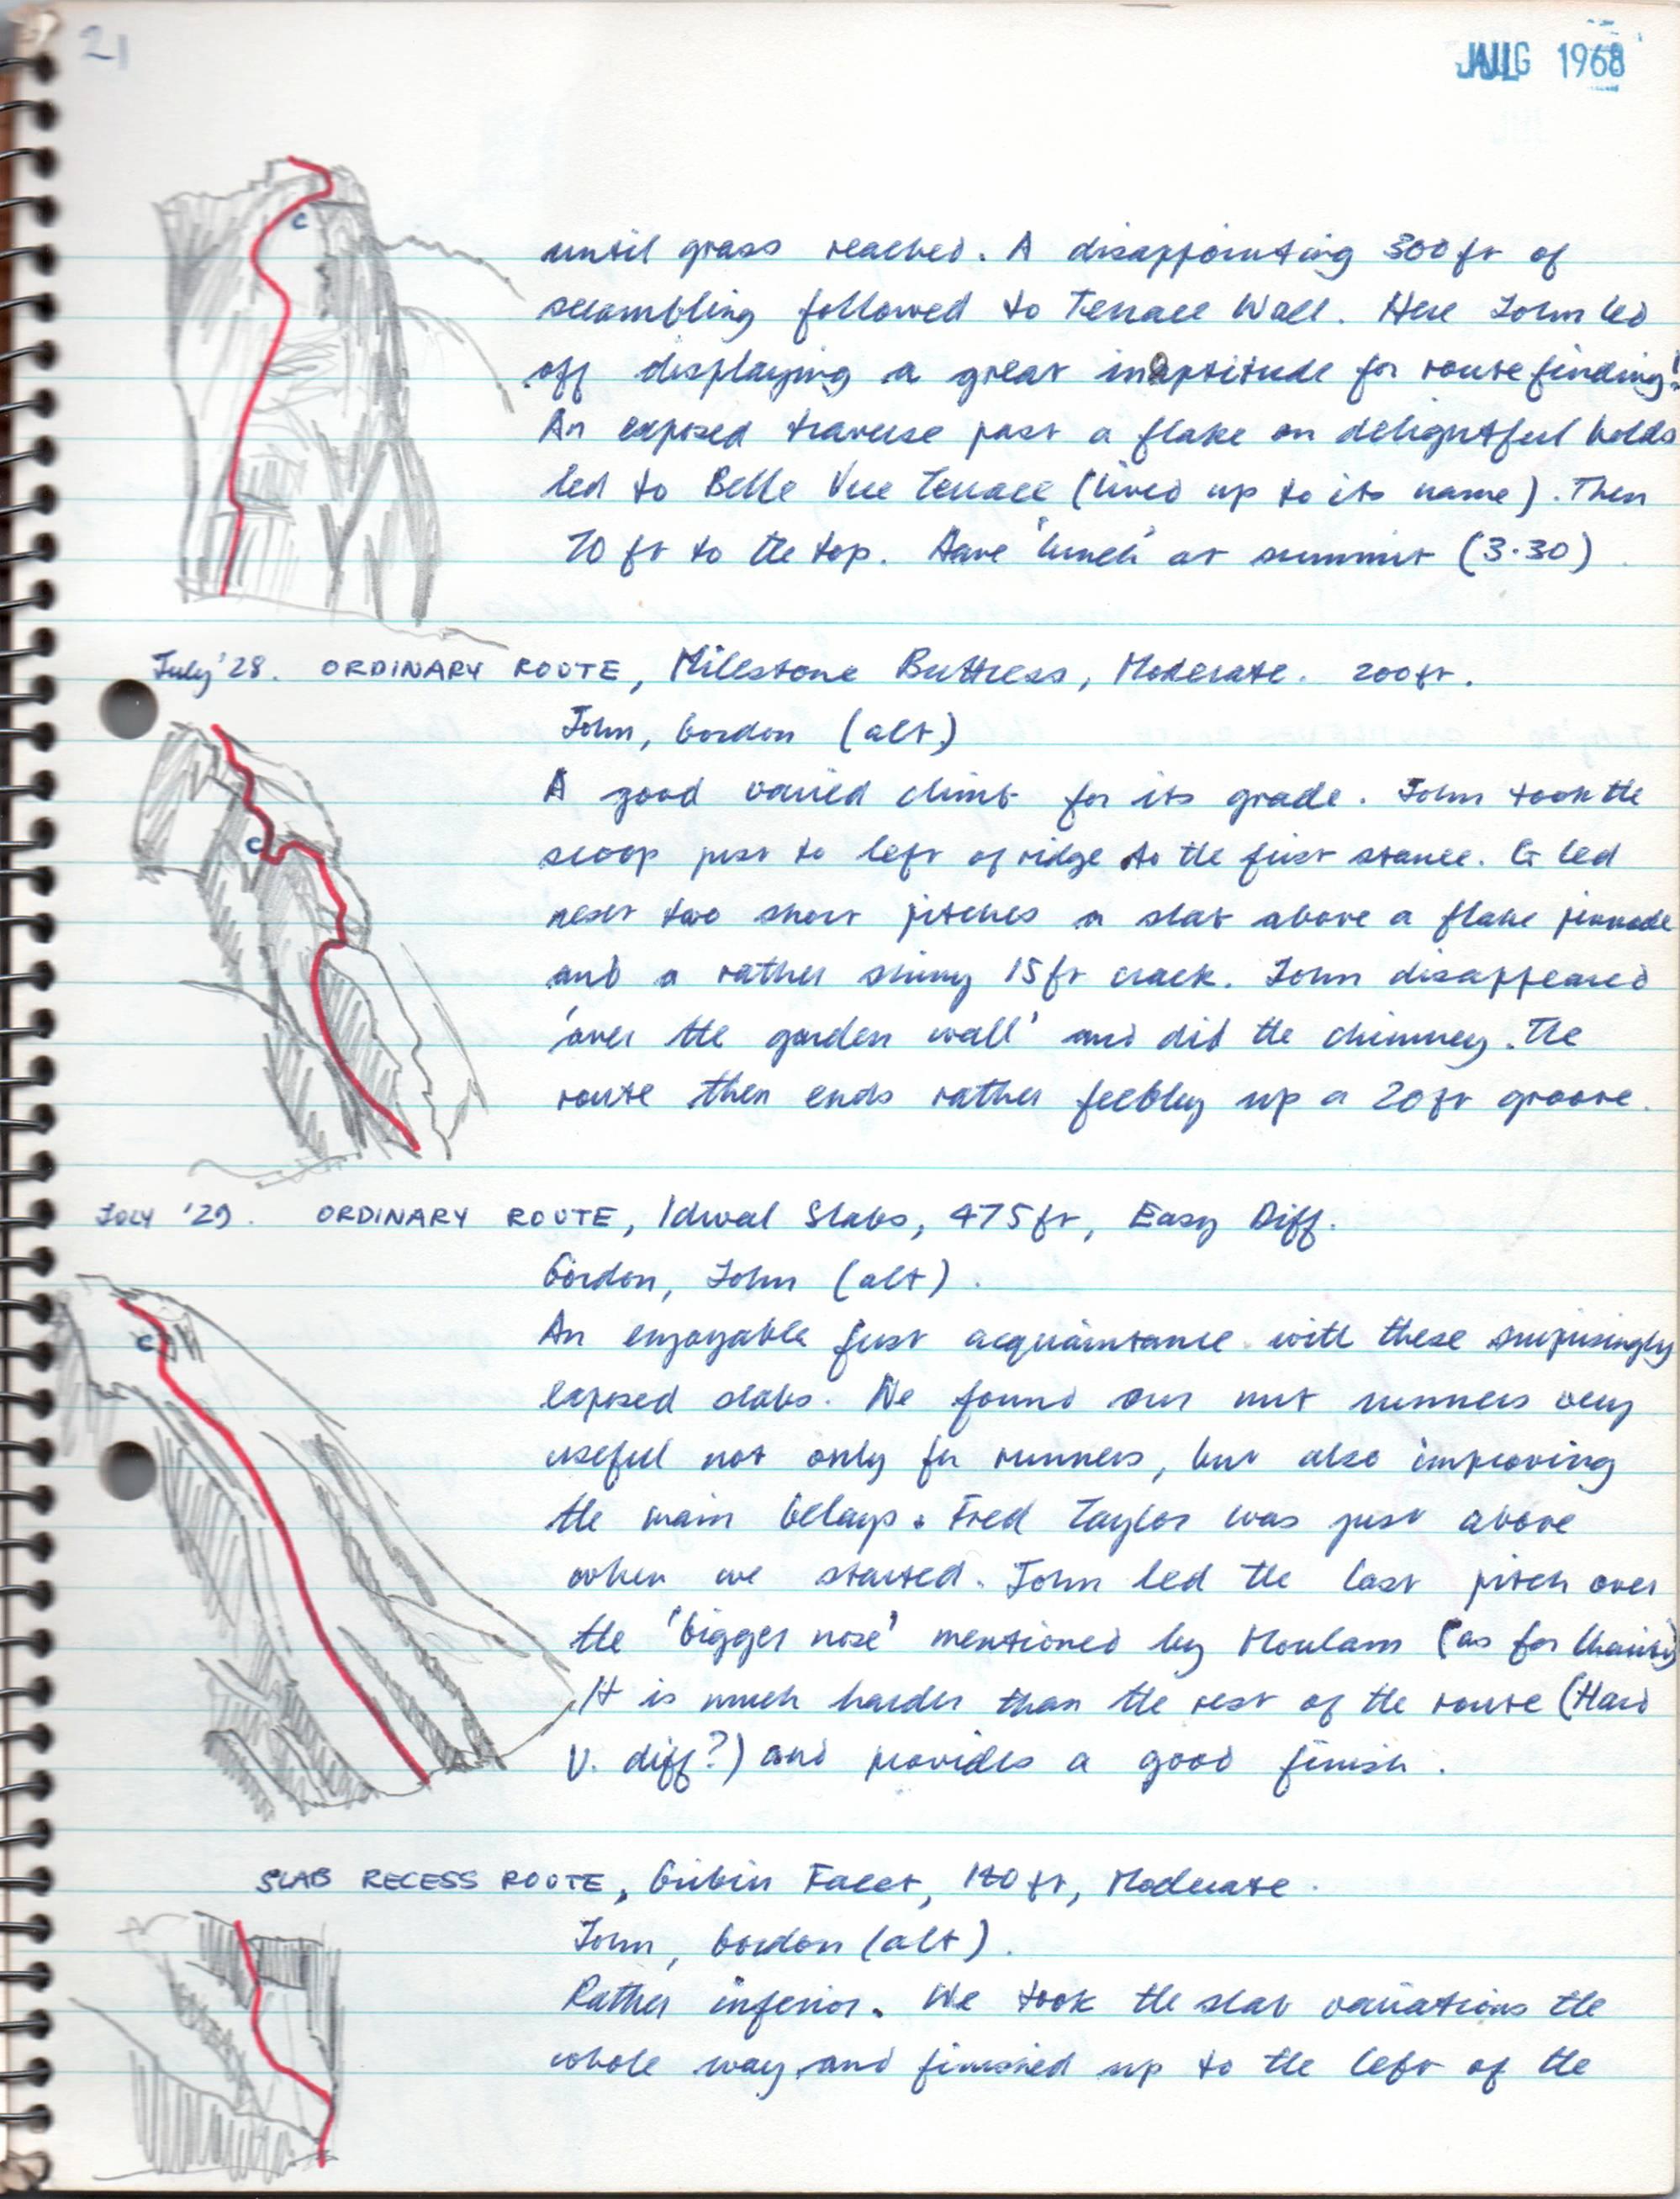 21
1968
until grass reached. A disappointing 300 ft of
scrambling followed to Terrace Wall. Here John led
off displaying a great inaptitude for route finding!
An exposed traverse past a flake on delightful holds
led to Belle Vue Terrace (lived up to its name). Then
70 ft to the top. Have 'lunch' at summit (3.30)
C
July '28. ORDINARY ROUTE, Milestone Buttress, Moderate. 200 ft.
John, Gordon (alt)
A good varied climb for its grade. John took the
scoop just to left of ridge to the first stance. G led
next two short pitches a slab above a flake pinnacle
and a rather shiny 15 ft crack. John disappeared
'over the garden wall' and did the chimney. The
route then ends rather feebly up a 20 ft groove.
C
JULY '29. ORDINARY ROUTE, Idwal Slabs, 475 ft, Easy Diff.
Gordon, John (alt).
An enjoyable first acquaintance with these surprisingly
exposed slabs. We found our nut runners very
useful not only for runners, but also improving
the main belays. Fred Taylor was just above
when we started. John led the last pitch over
the 'bigger nose' mentioned by Moulam (as for
It is much harder than the rest of the route (Hard
V. diff?) and provides a good finish.
C
SLAB RECESS ROUTE, Gribin Facet, ft, Moderate.
John, Gordon (alt).
Rather inferior. We took the slab variations the
whole way and finished up to the left of the